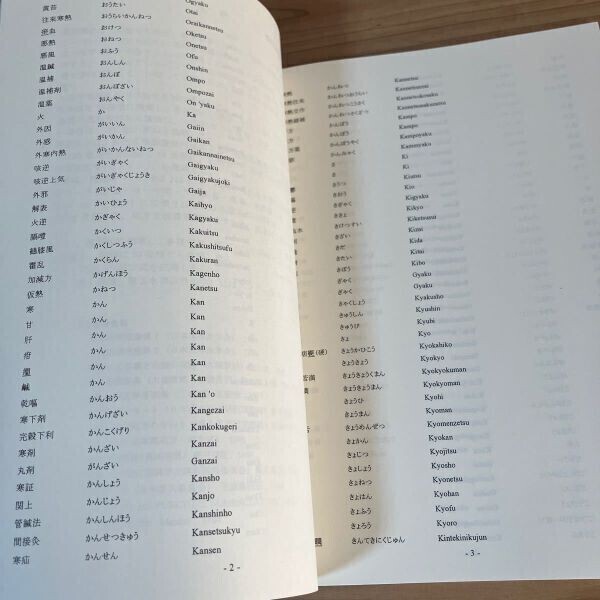 黄苔 おうたい Otai
往来寒熱 おうらいかんねつ Oraikannetsu
瘀血 おけつ Oketsu
悪熱 おねつ Onetsu
悪風 おふう Ofu
温鍼 おんしん Onshin
温補 おんぽ Ompo
温補剤 おんぽざい Ompozai
温薬 おんやく On 'yaku
火 か Ka
外因 がいいん Gaiin
外感 がいかん Gaikan
外寒内熱 がいかんないねつ Gaikannainetsu
咳逆 がいぎゃく Gaigyaku
咳逆上気 がいぎゃくじょうき Gaigyakujoki
外邪 がいじゃ Gaija
解表 かいひょう Kaihyo
火逆 かぎゃく Kagyaku
膈噎 かくいつ Kakuitsu
鶴膝風 かくしつふう Kakushitsufu
霍乱 かくらん Kakuran
加減方 かげんほう Kagenho
仮熱 かねつ Kanetsu
寒 かん Kan
甘 かん Kan
肝 かん Kan
疳 かん Kan
かん Kan
鍼 かん Kan
乾嘔 かんおう Kan 'o
寒下剤 かんげざい Kangezai
完穀下利 かんこくげり Kankokugeri
寒剤 かんざい Kanzai
丸剤 がんざい Ganzai
寒証 かんしょう Kansho
関上 かんじょう Kanjo
管鍼法 かんしんほう Kanshinho
間接灸 かんせつきゅう Kansetsukyu
寒疝 かんせん Kansen
- 2 -
かんねつ Kannetsu
かんねつおうらい
かんねつこうかく
かんねつかくざつ
かんぽう Kampo
かんぽうやく Kampoyaku
かんみゃく Kammyaku
き Ki
き Ki
きうつ Kiutsu
きおう Kio
きぎゃく Kigyaku
ききょ Kikyo
きけつすい Kiketsusui
きざい Kizai
きだ Kida
きたい Kitai
きぼう Kibo
ぎゃく Gyaku
ぎゃく Gyaku
きゃくしょう Kyakusho
きゅうしん Kyushin
きゅうび Kyubi
きょ Kyo
きょかひこう Kyokahiko
きょうきょう Kyokyo
きょうきょうくまん Kyokyokuman
きょうきょうまん Kyokyoman
きょうひ Kyohi
きょうまん Kyoman
きょうめんぜつ Kyomenzetsu
きょかん Kyokan
きょじつ Kyojitsu
きょしょう Kyosho
きょねつ Kyonetsu
きょはん Kyohan
きょふう Kyofu
きょろう Kyoro
きんてきにくじゅん Kintekinikujun
- 3 -